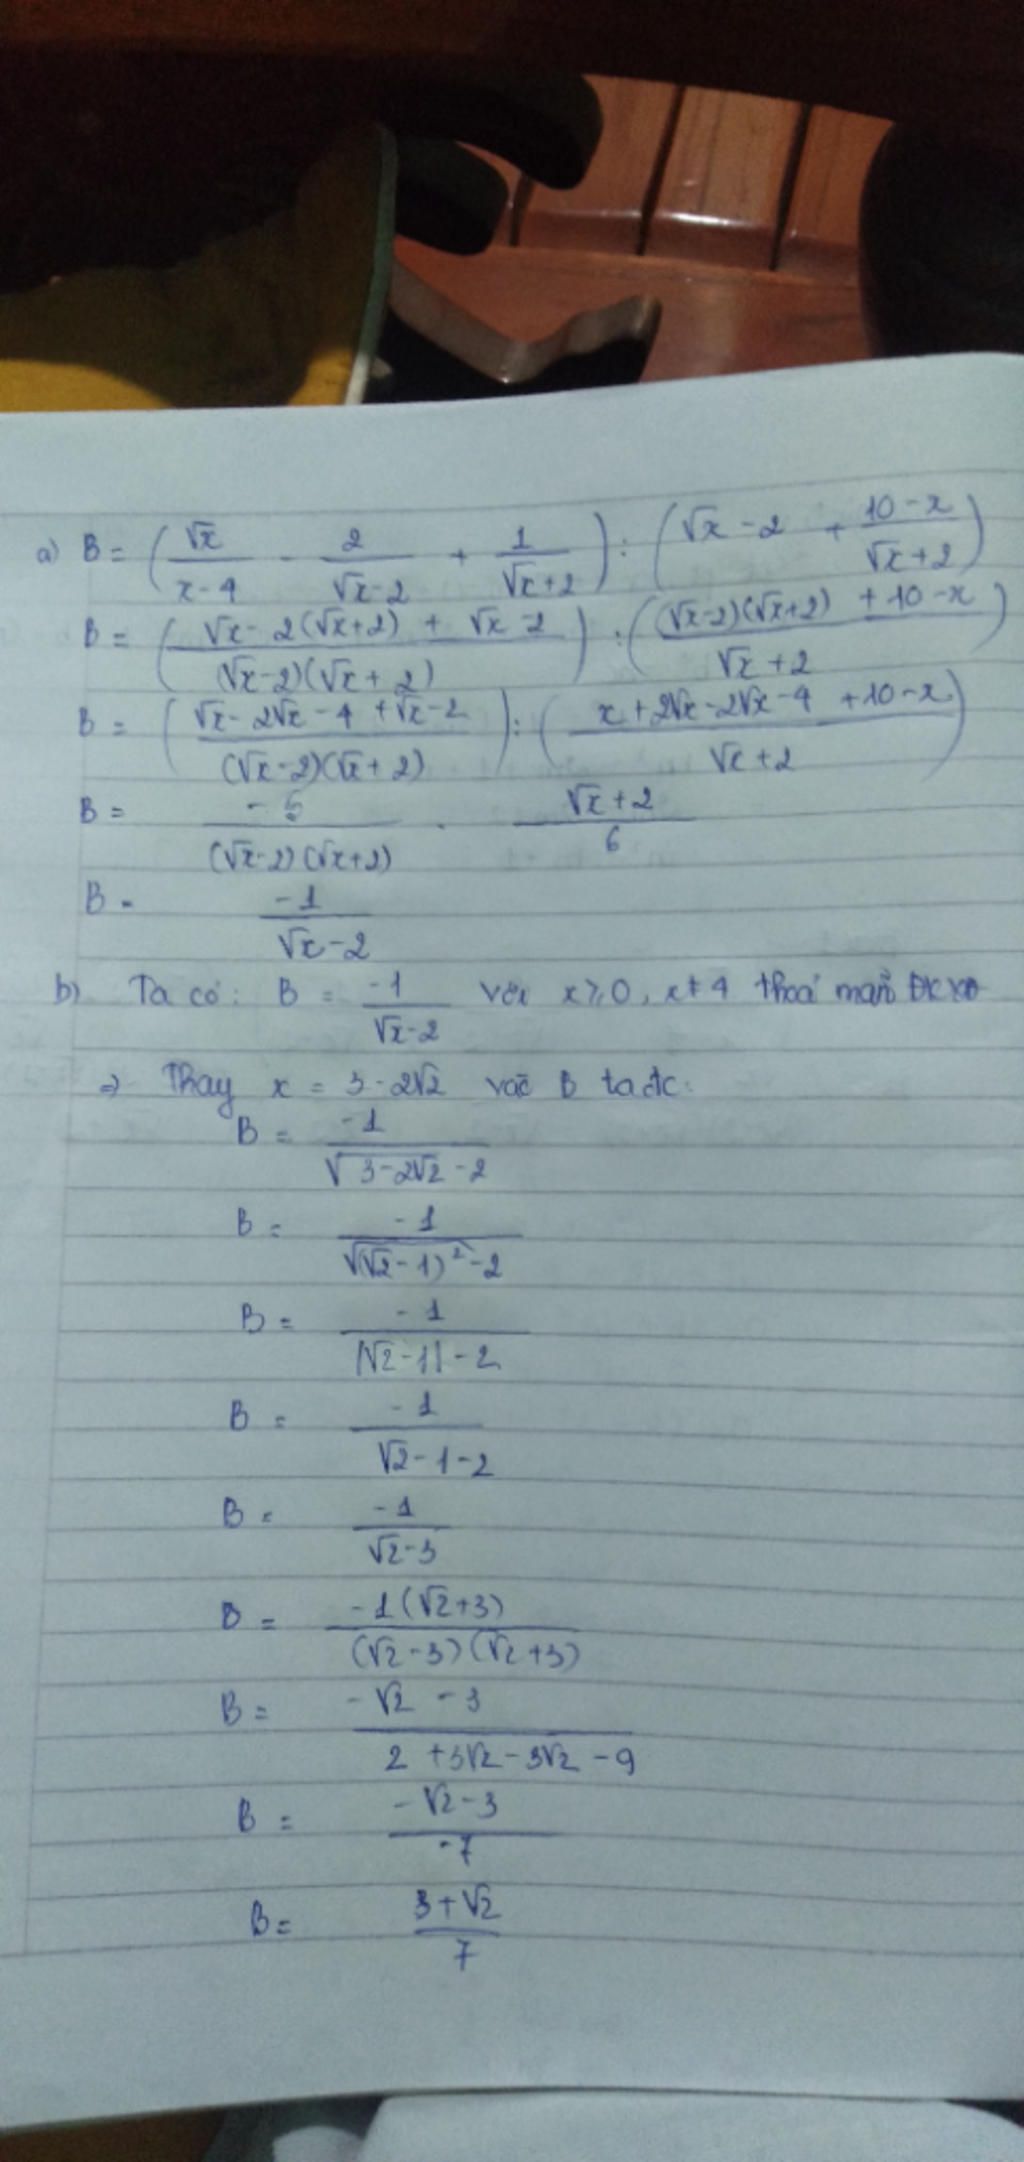 a) B = (√x / x-4 - 2 / √x-2 + 1 / √x+2) : (√x - 2 + 10-x / √x+2)
B = (√x - 2(√x+2) + √x-2 / (√x-2)(√x+2)) : ((√x-2)(√x+2) + 10-x / √x+2)
B = (√x - 2√x - 4 + √x - 2 / (√x-2)(√x+2)) : (x + 2√x - 2√x - 4 + 10 - x / √x+2)
B = -6 / (√x-2)(√x+2) . √x+2 / 6
B = -1 / √x-2
b) Ta có: B = -1 / √x-2 với x ⩾ 0, x ≠ 4 thoả mãn ĐKXĐ
⇒ Thay x = 3 - 2√2 vào B ta đc:
B = -1 / √3-2√2 - 2
B = -1 / √(√2-1)² - 2
B = -1 / |√2-1| - 2
B = -1 / √2-1-2
B = -1 / √2-3
B = -1(√2+3) / (√2-3)(√2+3)
B = -√2 - 3 / 2 + 3√2 - 3√2 - 9
B = -√2-3 / -7
B = 3+√2 / 7